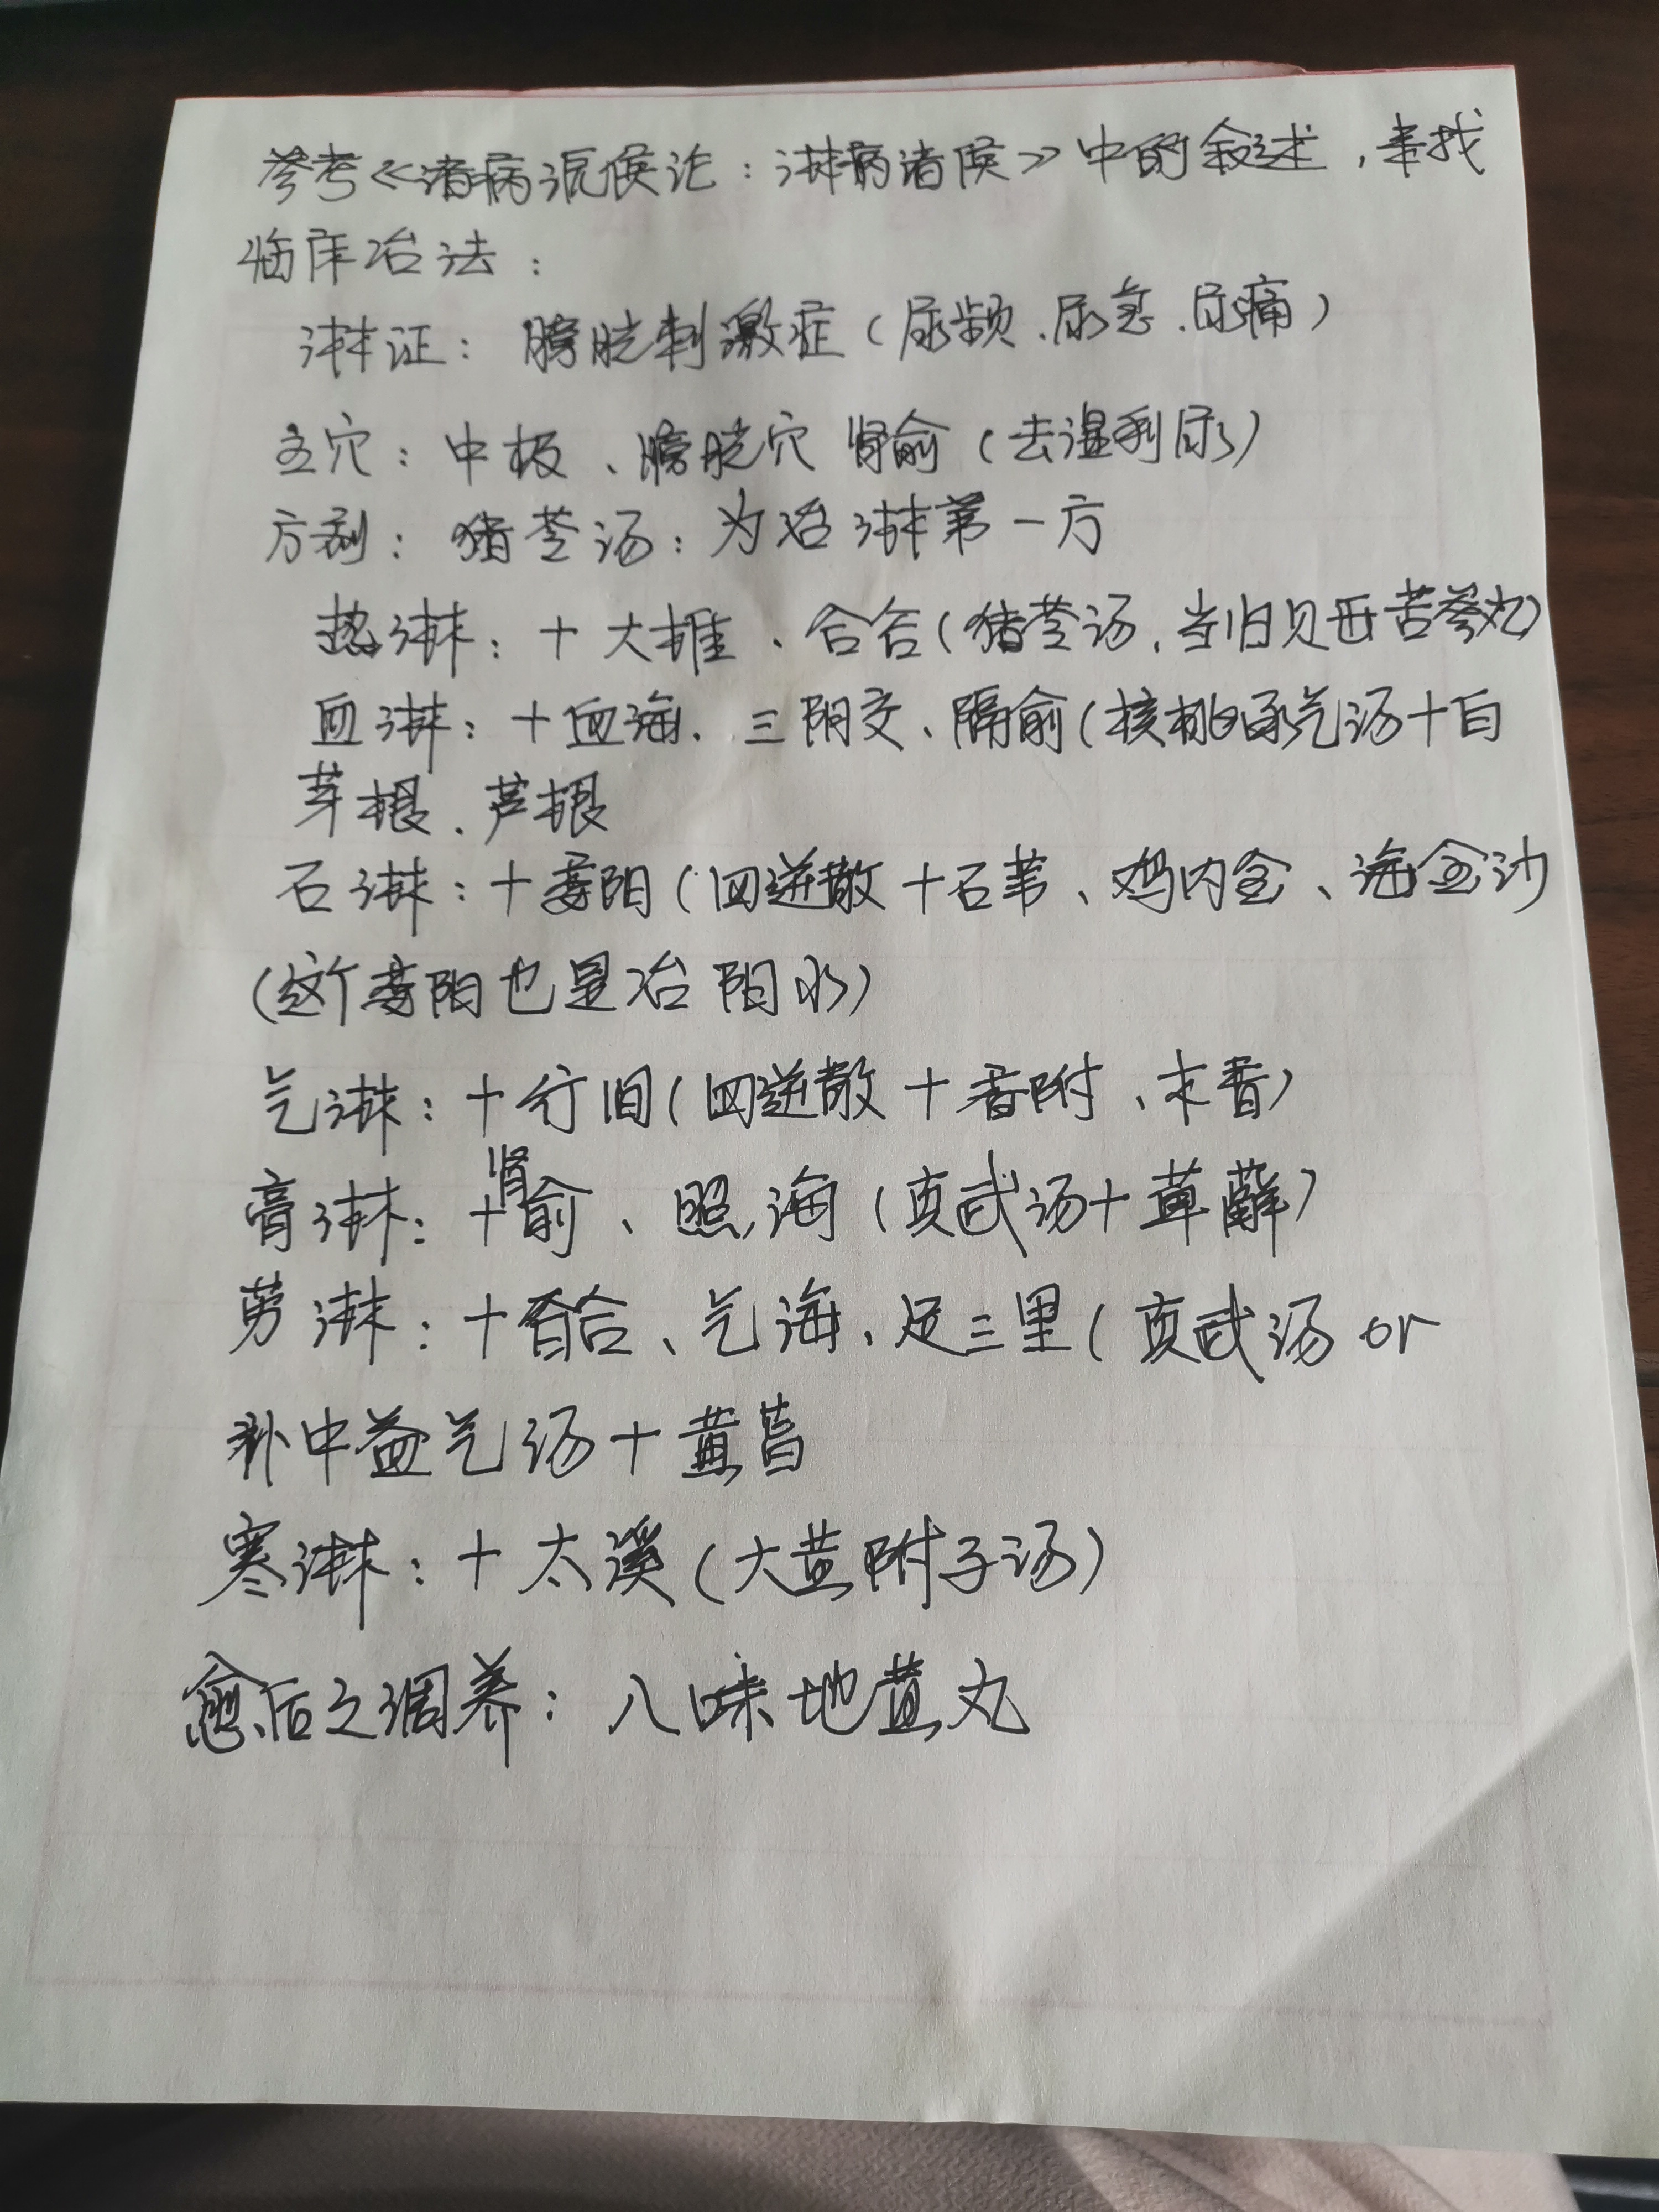 参考《诸病源候论：淋病诸候》中的叙述，来找
临床治法：
淋证：膀胱刺激症（尿频、尿急、尿痛）
主穴：中极、膀胱穴 肾俞（去湿利尿）
方剂：猪苓汤：为治淋第一方
热淋：＋大椎、合谷（猪苓汤，当归贝母苦参丸）
血淋：＋血海、三阴交、隔俞（核桃承气汤＋白
茅根、芦根
石淋：＋委阳（四逆散＋石苇、鸡内金、海金沙
（这个委阳也是治阳水）
气淋：＋行间（四逆散＋香附、木香）
膏淋：＋肾俞、照海（真武汤＋萆薢）
劳淋：＋百会、气海、足三里（真武汤 or
补中益气汤＋黄芪
寒淋：＋太溪（大黄附子汤）
愈后之调养：八味地黄丸